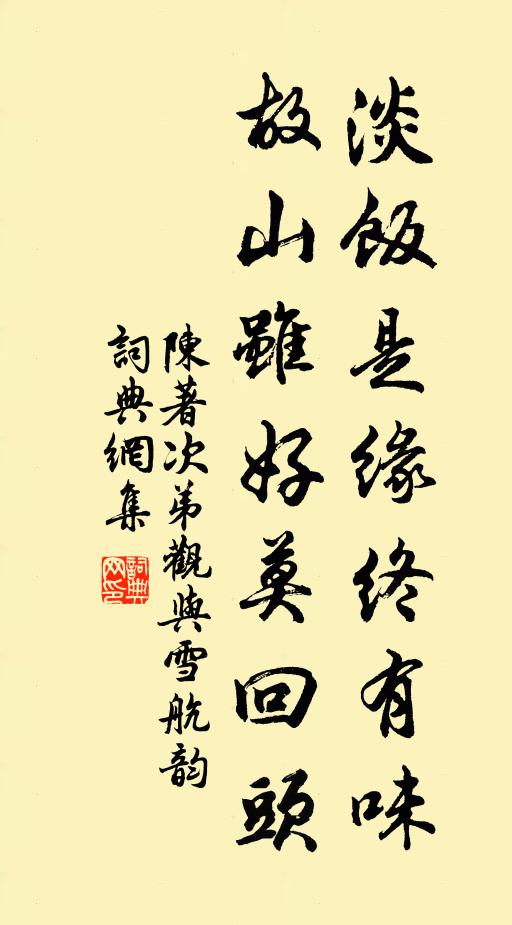 淡飯是緣終有味
故山雖好莫回頭
陳著次弟觀與雪航韵
詞典網集
詞典網印